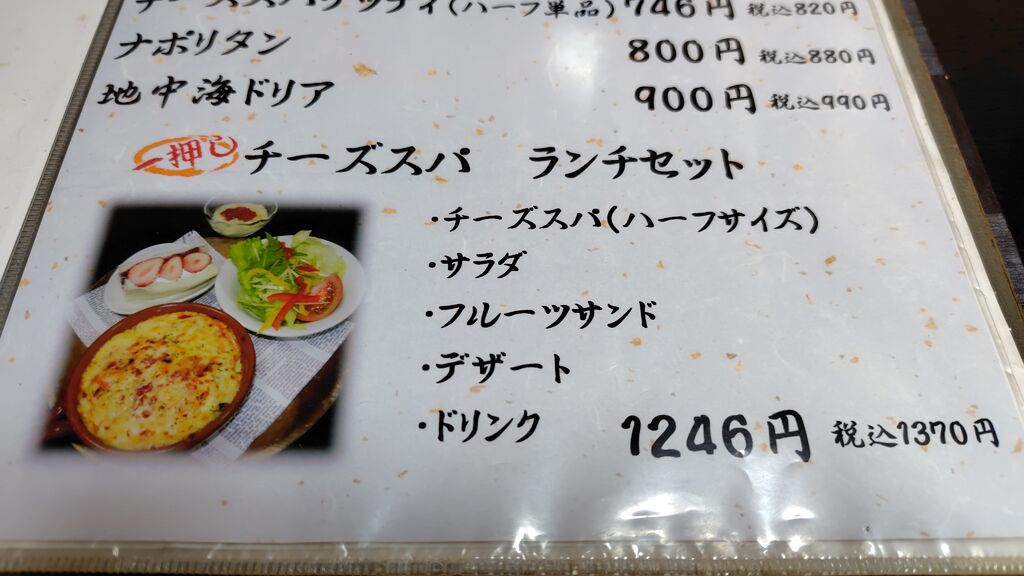 チーズスパゲッティ(ハーフ単品) 746円 税込820円
ナポリタン 800円 税込880円
地中海ドリア 900円 税込990円
押し チーズスパ ランチセット
・チーズスパ(ハーフサイズ)
・サラダ
・フルーツサンド
・デザート
・ドリンク 1246円 税込1370円